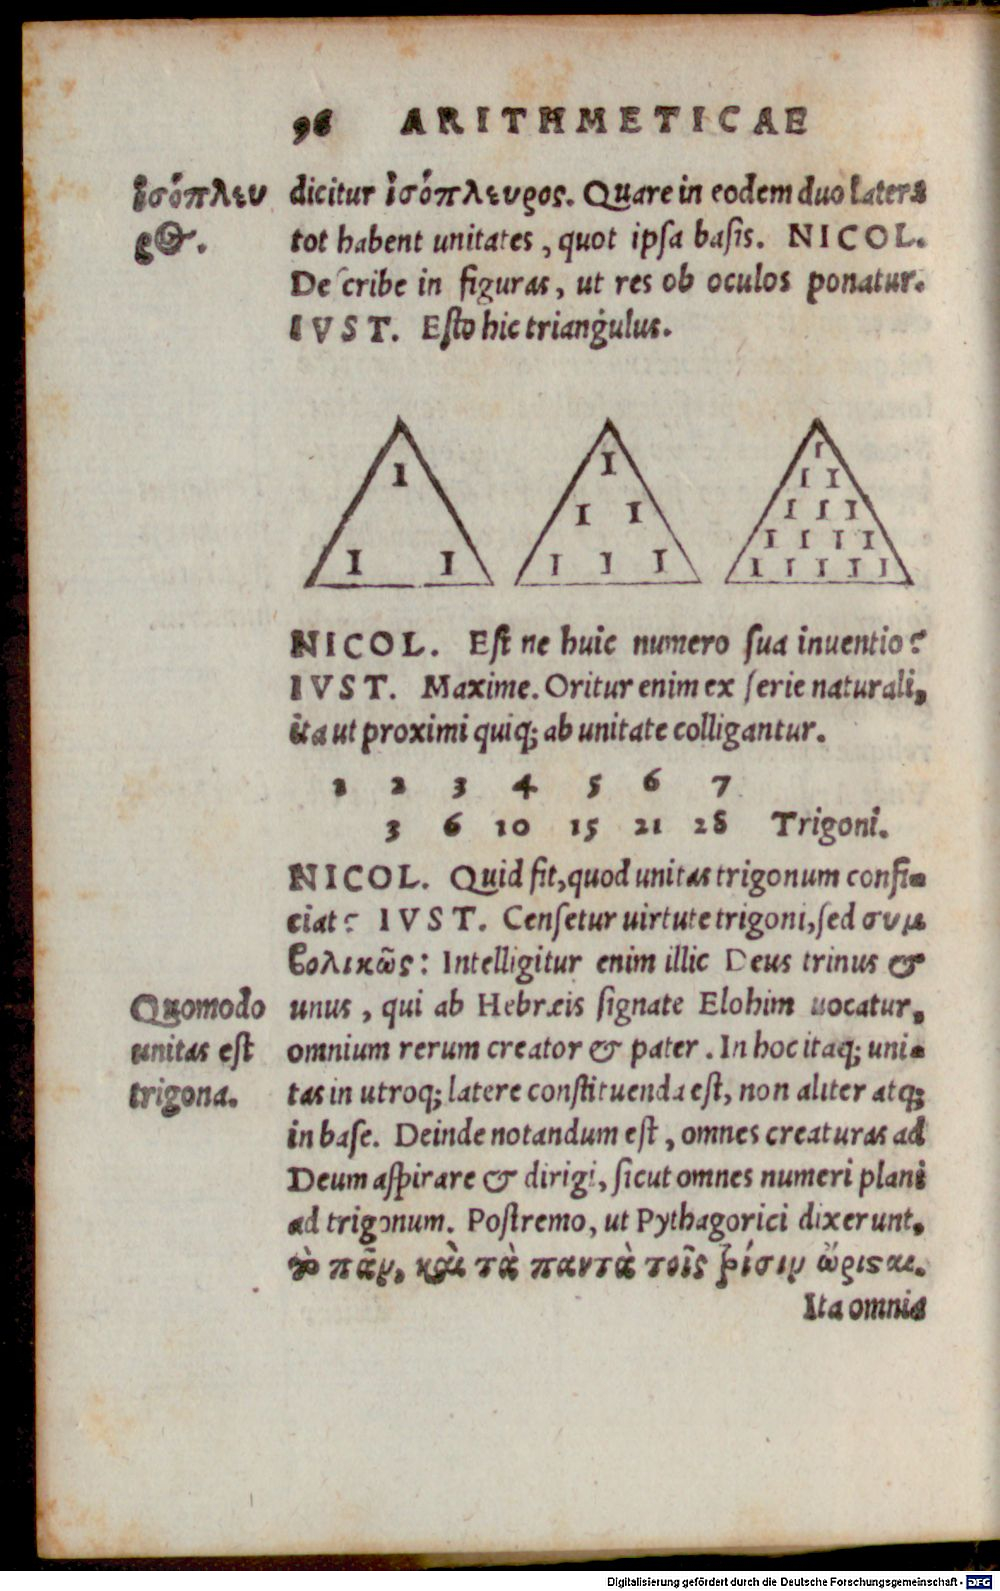 96 ARITHMETICAE
ἰσόπλευ
ρος.
dicitur ἰσόπλευρος. Quare in eodem duo latera
tot habent unitates, quot ipsa basis. NICOL.
Describe in figuras, ut res ob oculos ponatur.
IVST. Esto hic triangulus.
1 1 1
1 1 1 1 1
1 1 1 1
1 1 1 1 1 1 1
1 1 1 1 1 1 1 1 1 1
NICOL. Est ne huic numero sua inuentio?
IVST. Maxime. Oritur enim ex serie naturali,
ita ut proximi quiq; ab unitate colligantur.
1 2 3 4 5 6 7
3 6 10 15 21 28 Trigoni.
NICOL. Quid fit, quod unitas trigonum confi-
ciat? IVST. Censetur uirtute trigoni, sed συμ
βολικῶς: Intelligitur enim illic Deus trinus &
Quomodo
unitas est
trigona.
unus, qui ab Hebræis signate Elohim uocatur,
omnium rerum creator & pater. In hoc itaq; uni-
tas in utroq; latere constituenda est, non aliter atq;
in base. Deinde notandum est, omnes creaturas ad
Deum aspirare & dirigi, sicut omnes numeri plani
ad trigonum. Postremo, ut Pythagorici dixerunt,
τὸ πᾶν, καὶ τὰ παντὰ τοῖς τρίσιν ὥρισαι.
Ita omnia
Digitalisierung gefördert durch die Deutsche Forschungsgemeinschaft - DFG